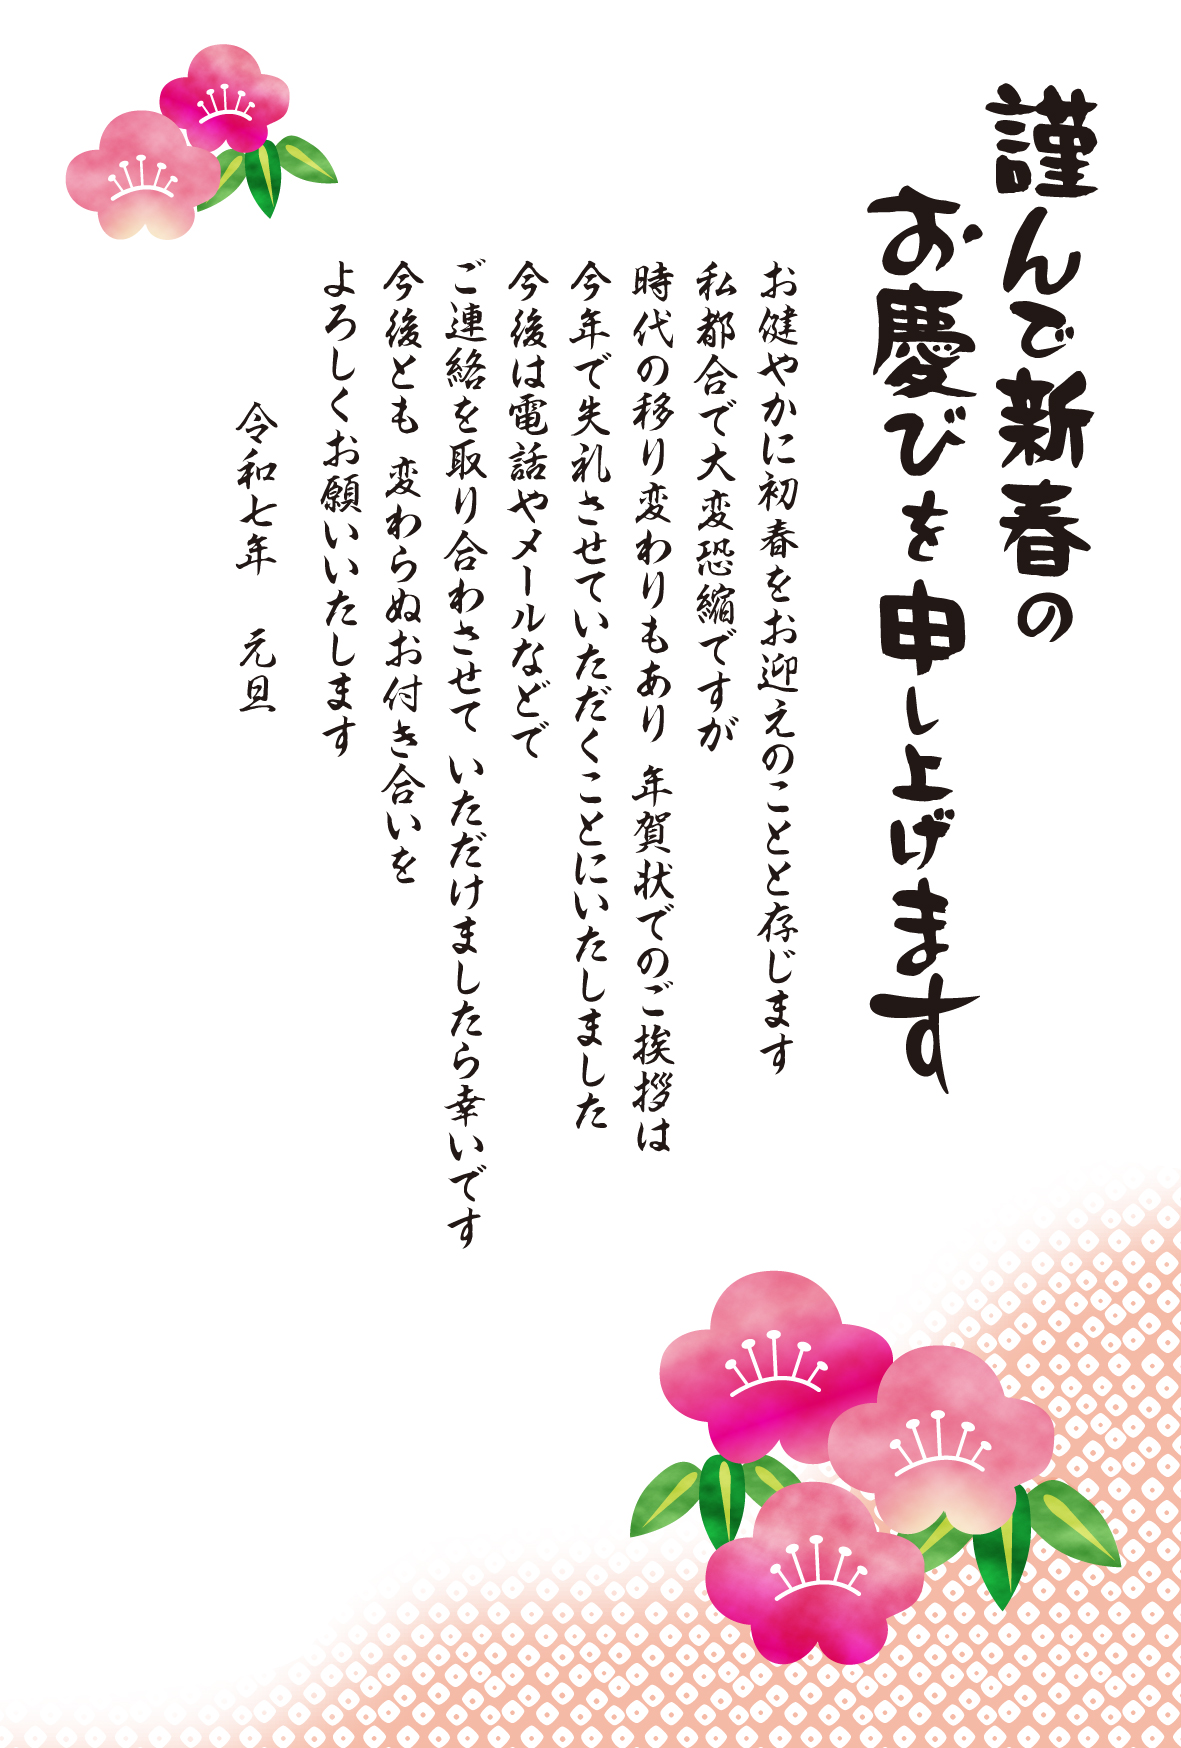 謹んで新春の
お慶びを申し上げます
お健やかに初春をお迎えのことと存じます
私都合で大変恐縮ですが
時代の移り変わりもあり 年賀状でのご挨拶は
今年で失礼させていただくことにいたしました
今後は電話やメールなどで
ご連絡を取り合わさせて いただけましたら幸いです
今後とも 変わらぬお付き合いを
よろしくお願いいたします
令和七年　元旦